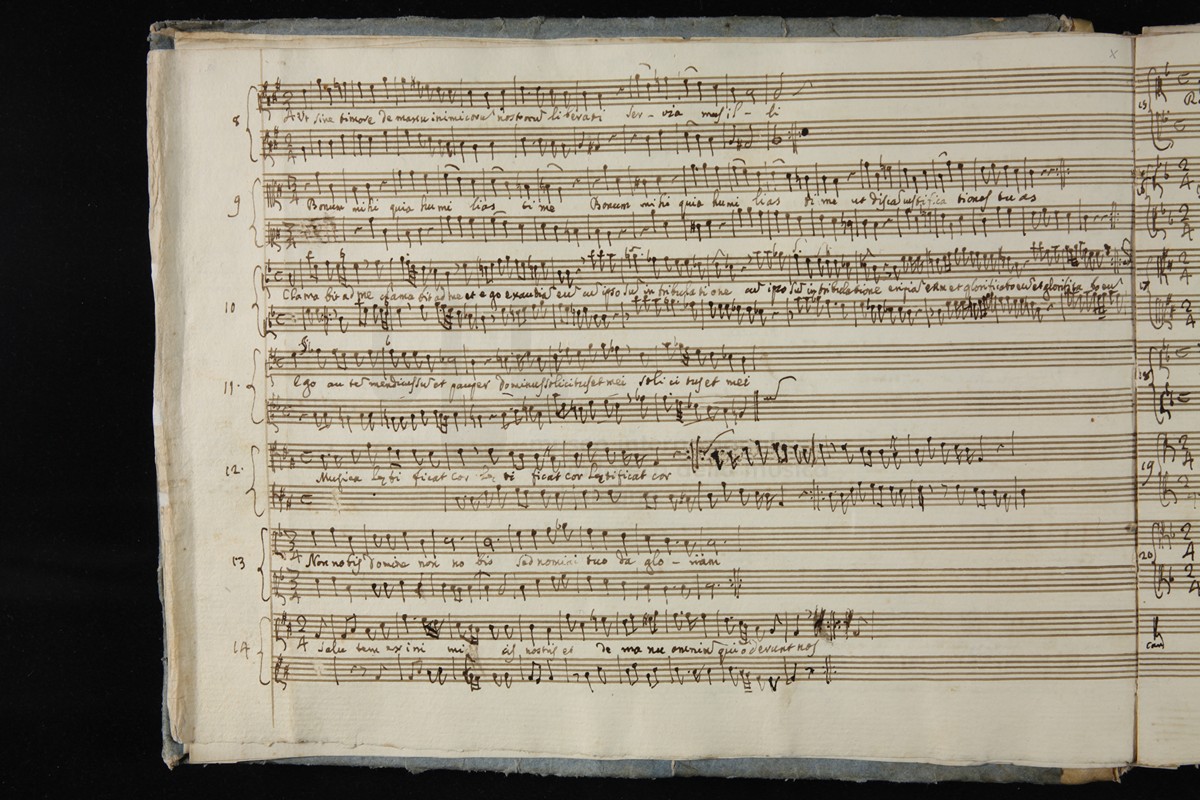 8
Ut sine timore de manu inimicorū nostrorū liberati ser - via mus il - li
9
Bonum mihi quia humi lias ti me Bonum mihi quia humi lias ti me ut discā iustifica tiones tu as
10
Clama bit ad me clama bit ad me et e go exaudiā eū cū ipso sū in tribulatione cū ipso sū in tribulatione eripiā eum et glorificabo eū et glorifica bo eū
11.
Ego au tē mendicus sū et pauper Dominus solicitus est mei soli ci tus est mei
12.
Musica lęti ficat cor lę ti ficat cor lętificat cor
13
Non nobis Domine non no bis sed nomini tuo da glo - riam
14
Salu tem ex ini mi cis nostris et de ma nu omniū qui oderunt nos
15
17
18
19
20